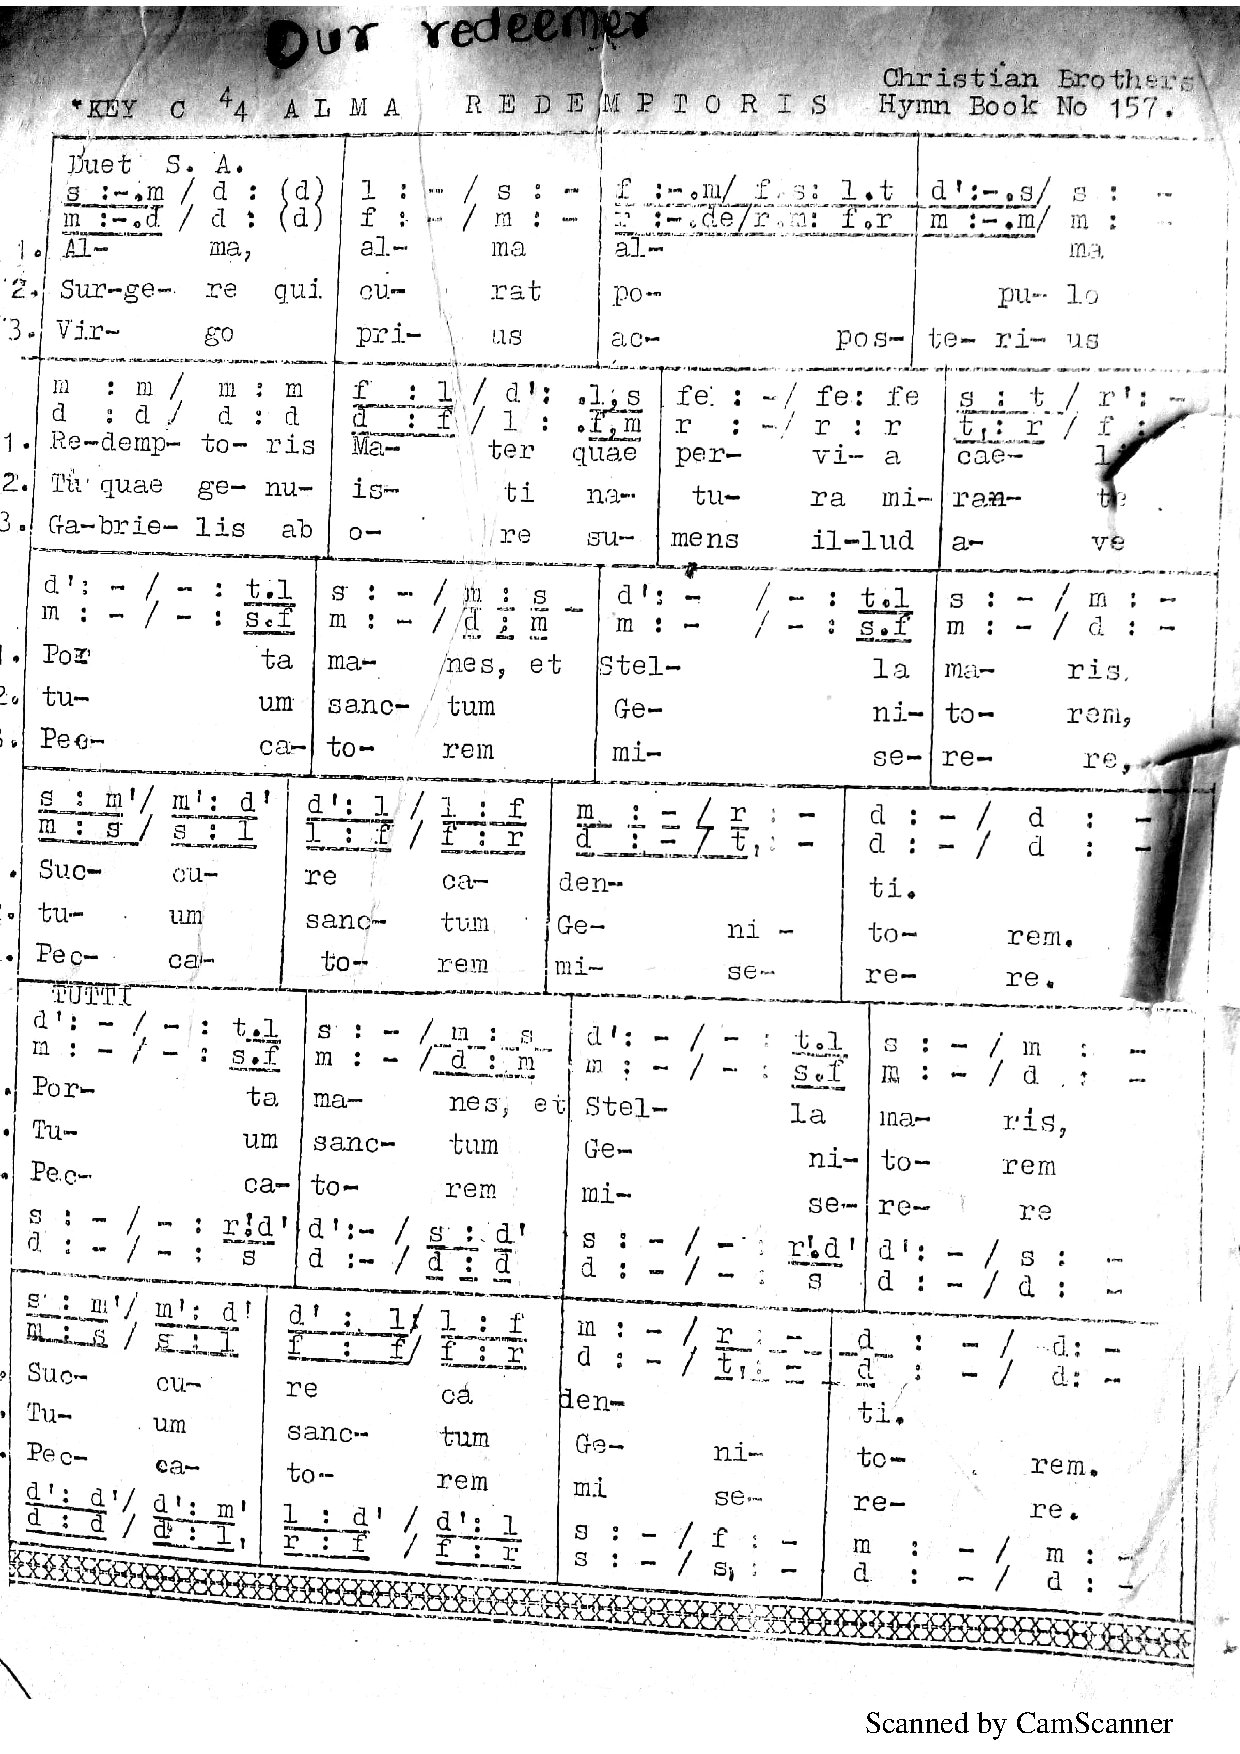 Our redeemer
Christian Brothers
*KEY C 4/4 ALMA REDEMPTORIS Hymn Book No 157.
Duet S. A.
s :-.m / d : (d) l : - / s : - f :-.m/ f.s: l.t d':-.s/ s : -
m :-.d / d : (d) f : - / m : - r :-.de/r.m: f.r m :-.m/ m : -
1. Al- ma, al- ma al- ma
2. Sur-ge- re qui cu- rat po- pu- lo
3. Vir- go pri- us ac- pos- te- ri- us
m : m / m : m f : l / d': .l,s fe : - / fe: fe s : t / r': -
d : d / d : d d : f / l : .f,m r : -/ r : r t,: r / f :
1. Re-demp- to- ris Ma- ter quae per- vi- a cae- li
2. Tu quae ge- nu- is- ti na- tu- ra mi- ran- te
3. Ga-brie- lis ab o- re su- mens il-lud a- ve
d': - / - : t.l s : - / m : s d': - / - : t.l s : - / m : -
m : - / - : s.f m : - / d : m m : - / - : s.f m : - / d : -
1. Por ta ma- nes, et Stel- la ma- ris,
2. tu- um sanc- tum Ge- ni- to- rem,
3. Pec- ca- to- rem mi- se- re- re,
s : m'/ m': d' d': l / l : f m : - / r : - d : - / d : -
m : s / s : l l : f / f : r d : - / t, : - d : - / d : -
. Suc- cu- re ca- den- ti.
. tu- um sanc- tum Ge- ni - to- rem.
. Pec- ca- to- rem mi- se- re- re.
TUTTI
d': - / - : t.l s : - / m : s d': - / - : t.l s : - / m : -
m : - / - : s.f m : - / d : m m : - / - : s.f m : - / d : -
. Por- ta ma- nes, et Stel- la ma- ris,
. Tu- um sanc- tum Ge- ni- to- rem
. Pec- ca- to- rem mi- se- re- re
s : - / - : r!d' d':- / s : d' s : - / - : r'.d' d': - / s : -
d : - / - : s d :- / d : d d : - / - : s d : - / d : -
s : m'/ m': d' d' : l/ l : f m : - / r : - d : - / d: -
m : s / s : l f : f/ f : r d : - / t, : - d : - / d: -
Suc- cu- re ca den- ti.
Tu- um sanc- tum Ge- ni- to- rem.
Pec- ca- to- rem mi se- re- re.
d': d'/ d': m' l : d' / d': l s : - / f : - m : - / m : -
d : d / d : l, r : f / f : r s : - / s, : - d : - / d : -
Scanned by CamScanner